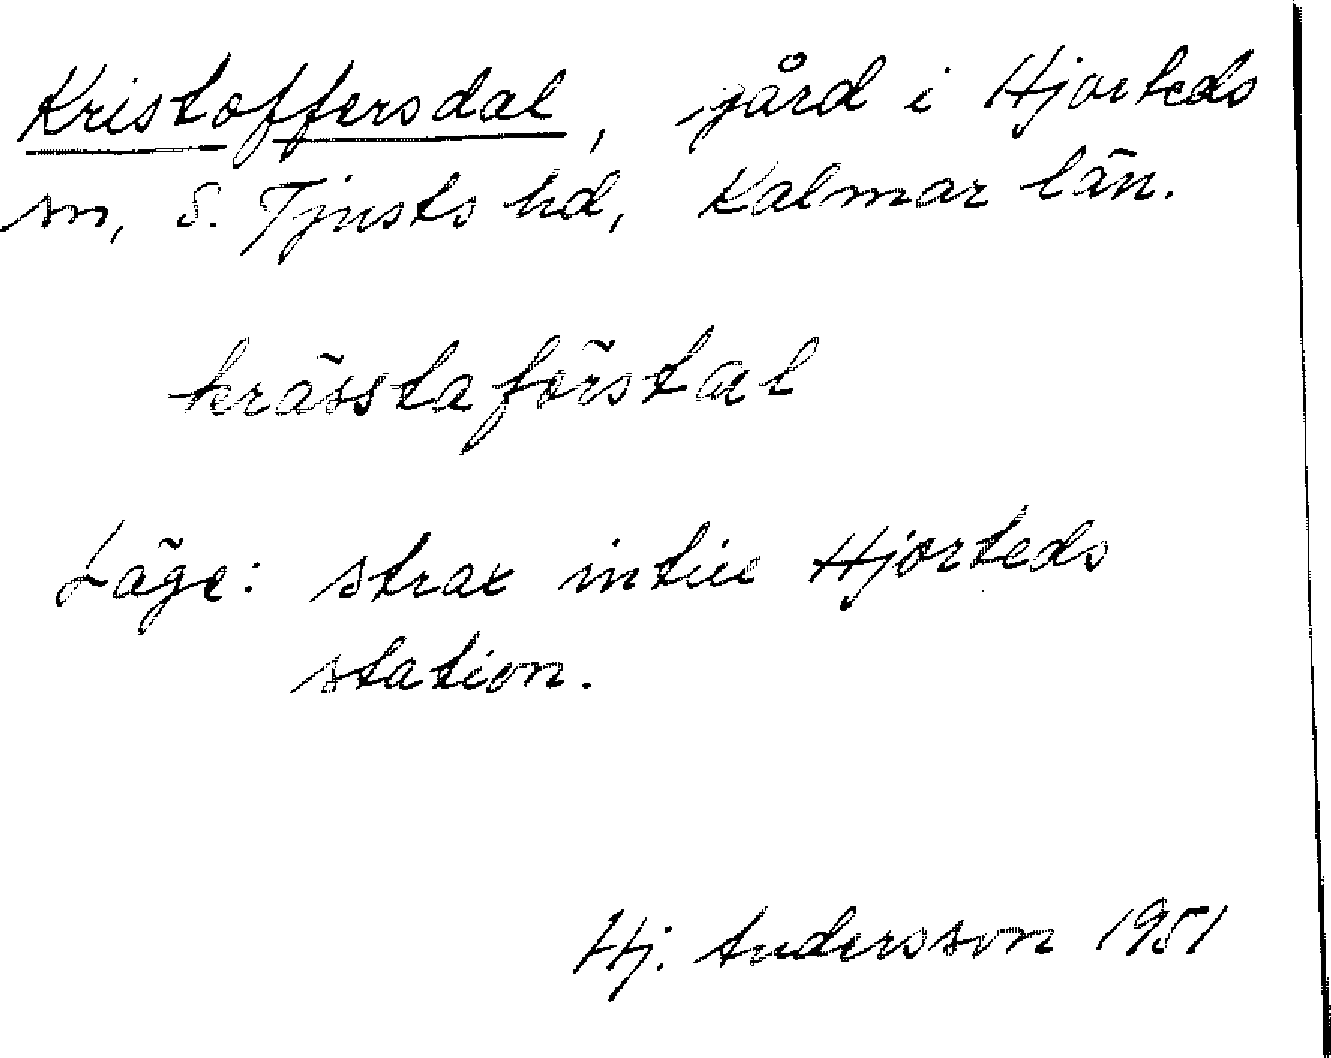 Kristoffersdal, gård i Hjorteds
sn, S. Tjusts hd, Kalmar län.
krässtaförstal
Läge: strax intill Hjorteds
station.
Hj. Andersson 1951